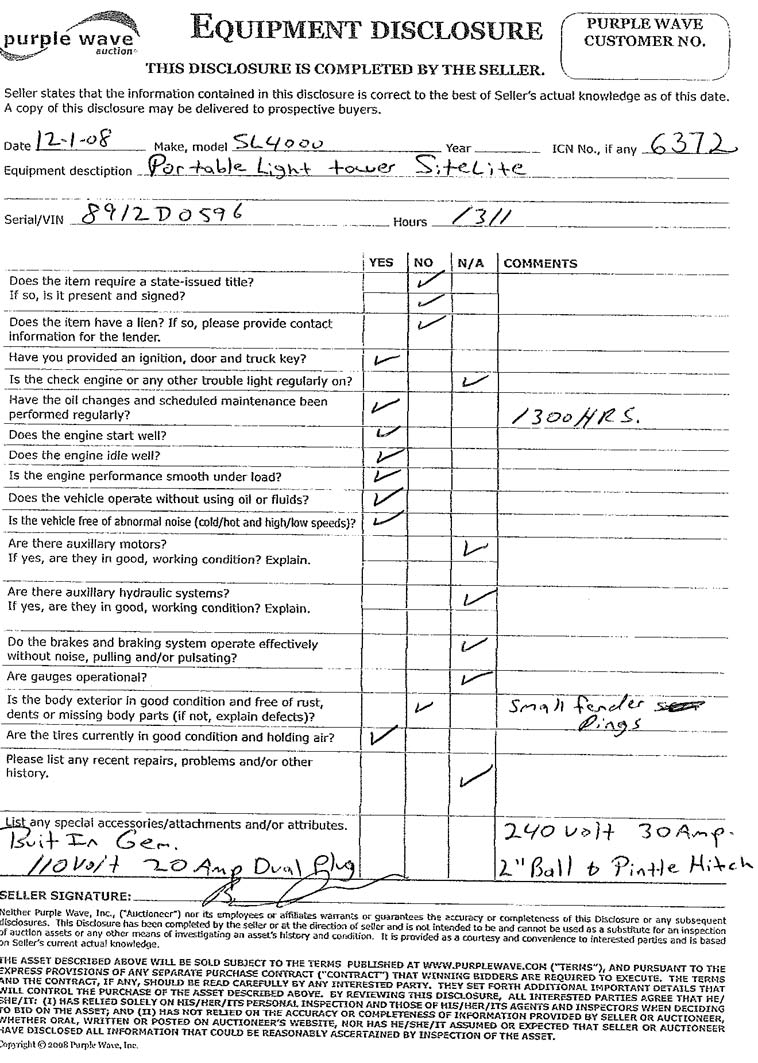 purple wave
auction
EQUIPMENT DISCLOSURE
PURPLE WAVE
CUSTOMER NO.
THIS DISCLOSURE IS COMPLETED BY THE SELLER.
Seller states that the information contained in this disclosure is correct to the best of Seller's actual knowledge as of this date.
A copy of this disclosure may be delivered to prospective buyers.
Date 12-1-08 Make, model SL4000 Year ICN No., if any 6372
Equipment desctiption Portable Light tower SiteLite
Serial/VIN 8912D0596 Hours 1311
YES NO N/A COMMENTS
Does the item require a state-issued title? ✓
If so, is it present and signed? ✓
Does the item have a lien? If so, please provide contact ✓
information for the lender.
Have you provided an ignition, door and truck key? ✓
Is the check engine or any other trouble light regularly on? ✓
Have the oil changes and scheduled maintenance been ✓
performed regularly? 1300 HRS.
Does the engine start well? ✓
Does the engine idle well? ✓
Is the engine performance smooth under load? ✓
Does the vehicle operate without using oil or fluids? ✓
Is the vehicle free of abnormal noise (cold/hot and high/low speeds)? ✓
Are there auxillary motors? ✓
If yes, are they in good, working condition? Explain.
Are there auxillary hydraulic systems? ✓
If yes, are they in good, working condition? Explain.
Do the brakes and braking system operate effectively ✓
without noise, pulling and/or pulsating?
Are gauges operational? ✓
Is the body exterior in good condition and free of rust, ✓ Small fender
dents or missing body parts (if not, explain defects)? Dings
Are the tires currently in good condition and holding air? ✓
Please list any recent repairs, problems and/or other ✓
history.
List any special accessories/attachments and/or attributes.
Buit In Gen. 240 Volt 30 Amp.
110 Volt 20 Amp Dual Plug 2" Ball to Pintle Hitch
SELLER SIGNATURE:
Neither Purple Wave, Inc., ("Auctioneer") nor its employees or affiliates warrants or guarantees the accuracy or completeness of this Disclosure or any subsequent
disclosures. This Disclosure has been completed by the seller or at the direction of seller and is not intended to be and cannot be used as a substitute for an inspection
of auction assets or any other means of investigating an asset's history and condition. It is provided as a courtesy and convenience to interested parties and is based
on Seller's current actual knowledge.
THE ASSET DESCRIBED ABOVE WILL BE SOLD SUBJECT TO THE TERMS PUBLISHED AT WWW.PURPLEWAVE.COM ("TERMS"), AND PURSUANT TO THE
EXPRESS PROVISIONS OF ANY SEPARATE PURCHASE CONTRACT ("CONTRACT") THAT WINNING BIDDERS ARE REQUIRED TO EXECUTE. THE TERMS
AND THE CONTRACT, IF ANY, SHOULD BE READ CAREFULLY BY ANY INTERESTED PARTY. THEY SET FORTH ADDITIONAL IMPORTANT DETAILS THAT
WILL CONTROL THE PURCHASE OF THE ASSET DESCRIBED ABOVE. BY REVIEWING THIS DISCLOSURE, ALL INTERESTED PARTIES AGREE THAT HE/
SHE/IT: (I) HAS RELIED SOLELY ON HIS/HER/ITS PERSONAL INSPECTION AND THOSE OF HIS/HER/ITS AGENTS AND INSPECTORS WHEN DECIDING
TO BID ON THE ASSET; AND (II) HAS NOT RELIED ON THE ACCURACY OR COMPLETENESS OF INFORMATION PROVIDED BY SELLER OR AUCTIONEER,
WHETHER ORAL, WRITTEN OR POSTED ON AUCTIONEER'S WEBSITE, NOR HAS HE/SHE/IT ASSUMED OR EXPECTED THAT SELLER OR AUCTIONEER
HAVE DISCLOSED ALL INFORMATION THAT COULD BE REASONABLY ASCERTAINED BY INSPECTION OF THE ASSET.
Copyright © 2008 Purple Wave, Inc.